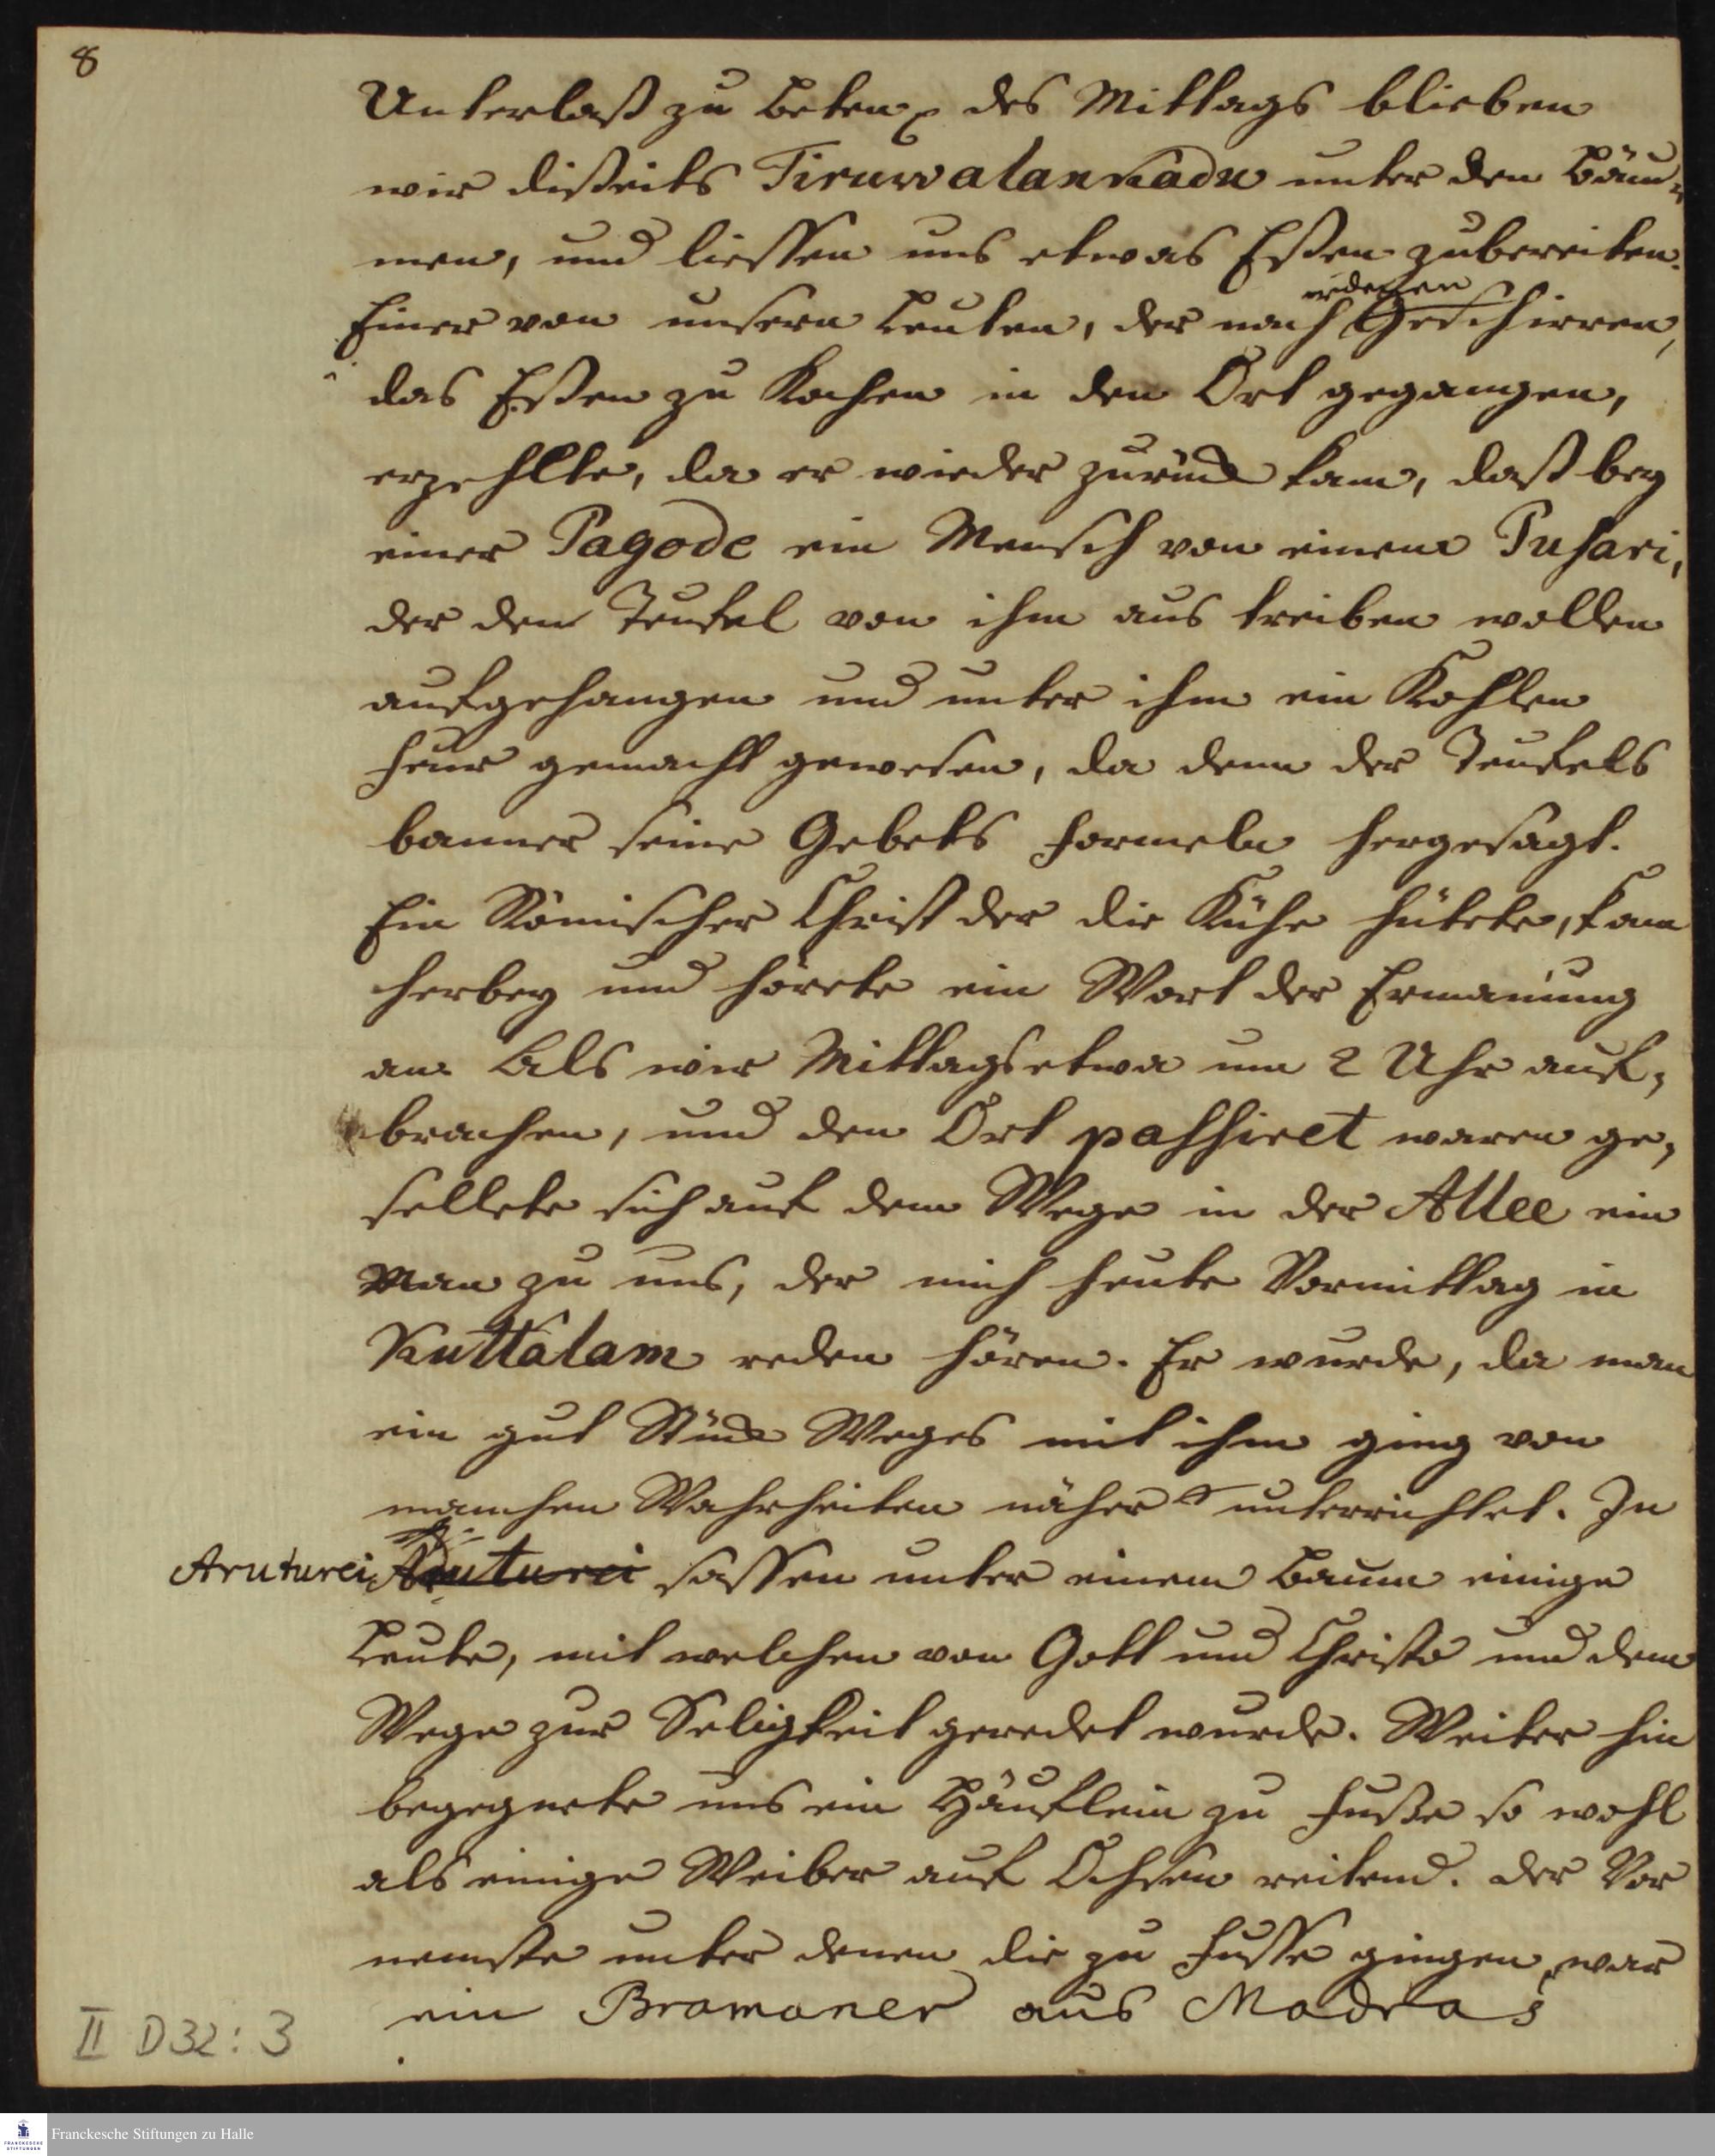 8
Unterlaß zu beten, des Mittags blieben
wir disseits Tiruwalankadu unter den Bäu¬
men, und liessen uns etwas Eßen zubereiten.
irdenen
Einer von unsern Leuten, der nach Geschirren,
das Eßen zu Kochen in den Ort gegangen,
erzehlte, da er wieder zurück kam, daß bey
einer Pagode ein Mensch von einem Pusari,
der den Teufel von ihm aus treiben wollen
aufgehangen und unter ihm ein Kohlen
feur gemacht gewesen, da denn der Teufels
banner seine Gebets formeln hergesagt.
Ein Römischer Christ der die Kühe hütete, kam
herbey und hörete ein Wort der Ermañung
an. Als wir Mittags etwa um 2 Uhr auf¬
brachen, und den Ort passiret waren ge¬
sellete sich auf dem Wege in der Allee ein
Man zu uns, der mich heute Vormittag in
Kuttalam reden hören. Er wurde, da man
ein gut Stück Weges mit ihm ging von
manchen Wahrheiten näher unterrichtet. In
Aruturei Aruturei sassen unter einem Baum einige
Leute, mit welchen von Gott und Christo und dem
Wege zur Seligkeit geredet wurde. Weiter hin
begegnete uns ein Häuflein zu Fuße so wohl
als einige Weiber auf Ochsen reitend. Der Vor
nemste unter denen die zu Fusse gingen, war
ein Bramaner aus Madras
II D32:3
Franckesche Stiftungen zu Halle
FRANCKESCHE
STIFTUNGEN